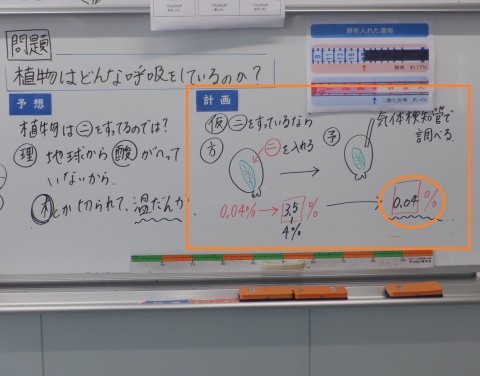 問題
植物はどんな呼吸をしているのか?
予想
植物は㊁をすってるのでは?
理 地球から酸がへって
いないから。
木とか切られて、温だんか
計画
仮 ㊁をすっているなら
方 ㊁を入れる → 予 気体検知管で
調べる。
0.04% → 3.5% → 0.04%
4%